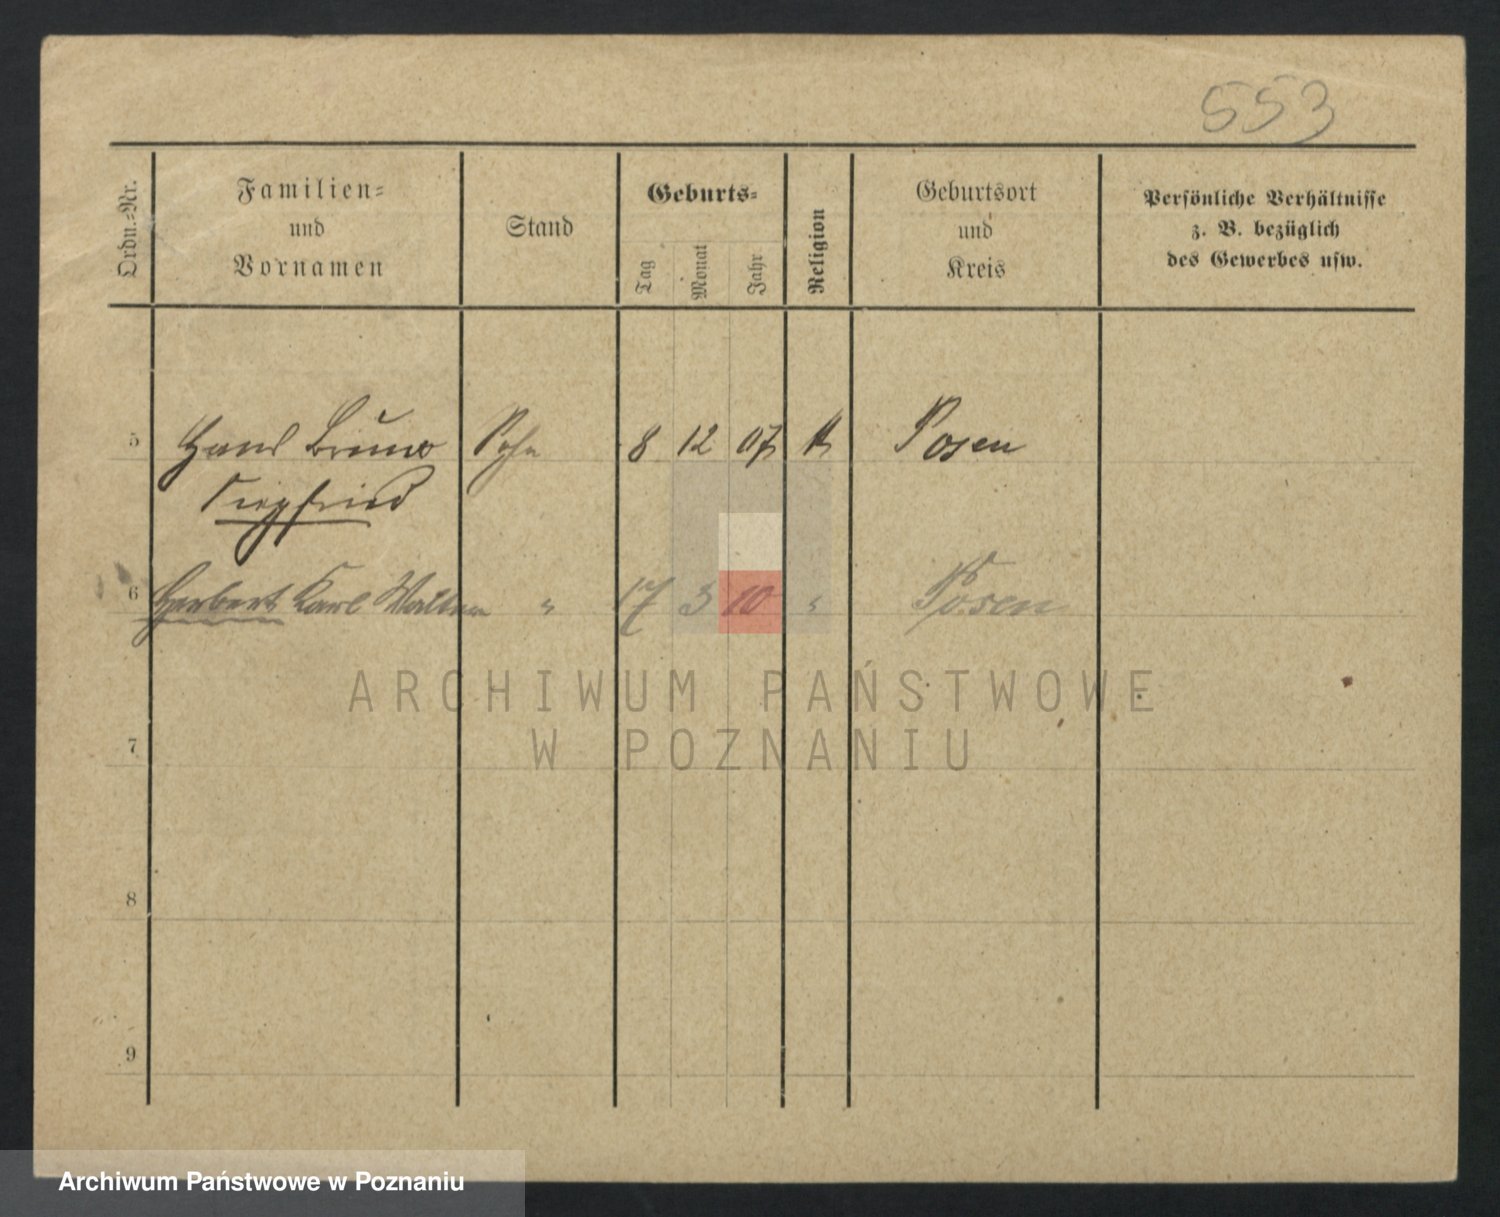 553
Ordn.-Nr.
Familien-
und
Vornamen
Stand
Geburts-
Tag
Monat
Jahr
Religion
Geburtsort
und
Kreis
Persönliche Verhältnisse
z. B. bezüglich
des Gewerbes usw.
5 Hans Bruno Sohn 8 12 07 Posen
Siegfried
6 Herbert Karl Walter " 17 3 10 " Posen
ARCHIWUM PAŃSTWOWE
W POZNANIU
7
8
9
Archiwum Państwowe w Poznaniu